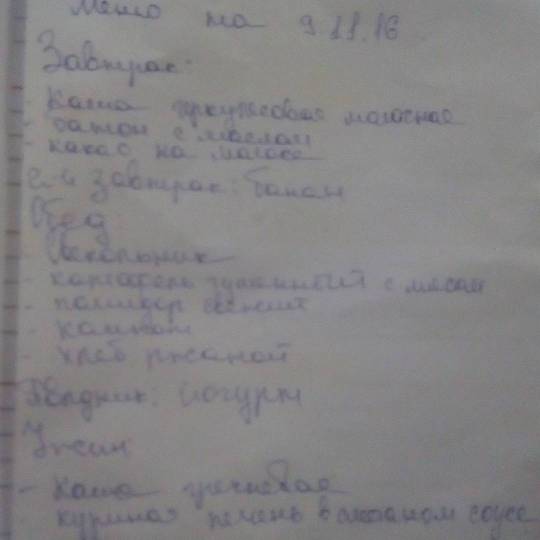 Меню на 9.11.16
Завтрак:
- Каша кукурузовая молочная
- батон с маслом
- какао на молоке
2-й завтрак: банан
Обед
- Рассольник
- картофель тушонный с мясом
- помидор свежий
- компот
- хлеб ржаной
Полдник: йогурт
Ужин
- Каша гречневая
куриная печень в сметаном соусе